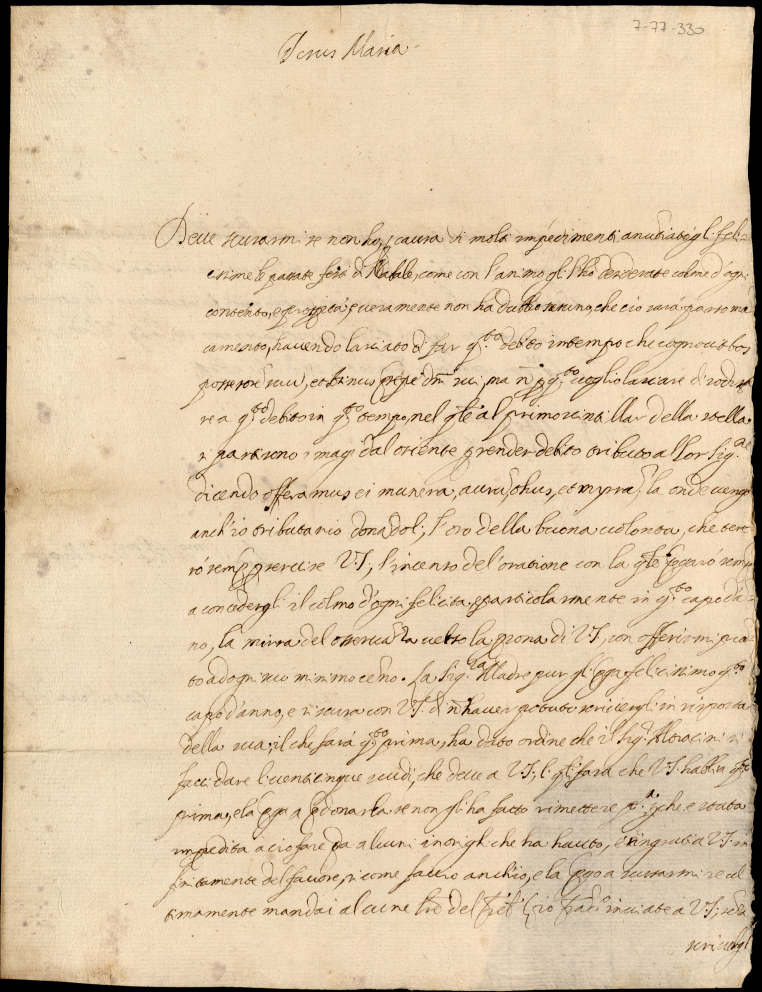 7-77-330
Jesus Maria
Deve scusarmi se non ho, p causa di molti impedimenti anuntiatogli feli-
cissime le passate feste di Natale, come con l'animo gli l'ho desiderate colme d'ogni
contento, e prosperità, e veramente non ha dubbio veruno, che cio sarà parso ma
camento, havendo lasciato di far q.to debito in tempo che cognovit bos
possessore suu, et asinus presepe dni sui, ma n p q.to voglio lasciare di
re a q.to debito in q.to tempo, nel q.le al primo scintillar della stella
si partirono i magi dal oriente p render debito tributo al lor Sig.re
dicendo offeramus ei munera, auru, thus, et myrra, la onde vengo
anch'io tributario donadoli l'oro della buona volonta, che
rò semp p servire V.S, l'incenso del'oratione con la q.le pregarò semp
a concedergli il colmo d'ogni felicita, e particolarmente in q.to capo da-
no, la mirra del verso la psona di V.S, con offerirmi
to ad ogni suo minimo ceno. La Sig.ra Madre pur gli pga felicissimo q.to
capo d'anno, e si scusa con V.S. di n haver potuto scrivergli in risposta
della sua, il che farà q.to prima, ha dato ordine che il Sig.r si
facci dare li venticinque scudi, che deve a V.S, li q.li farà che V.S. habbia q.to
prima, e la pga a pdonarla se non gli ha fatto rimettere p.a, p che e stata
impedita a cio fare da alcuni che ha hauto, e ringratia V.S. in
finitamente del favore, si come faccio anch'io, e la pgo a scusarmi se ul
timamente mandai alcune lre del inviate a V.S, senza
scrivergli